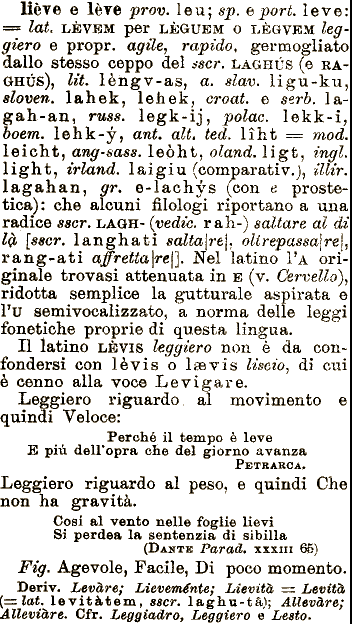 liève e lève prov. leu; sp. e port. leve:
= lat. LÈVEM per LÈGUEM o LÈGVEM leg-
giero e propr. agile, rapido, germogliato
dallo stesso ceppo del sscr. LAGHÚS (e RA-
GHÚS), lit. lèngv-as, a. slav. ligu-ku,
sloven. lahek, lehek, croat. e serb. la-
gah-an, russ. legk-ij, polac. lekk-i,
boem. lehk-ý, ant. alt. ted. lîht = mod.
leicht, ang-sass. leòht, oland. ligt, ingl.
light, irland. laigiu (comparativ.), illir.
lagahan, gr. e-lachỳs (con e proste-
tica): che alcuni filologi riportano a una
radice sscr. LAGH- (vedic. rah-) saltare al di
là [sscr. langhati salta[re], oltrepassa[re],
rang-ati affretta[re]]. Nel latino l'A ori-
ginale trovasi attenuata in E (v. Cervello),
ridotta semplice la gutturale aspirata e
l'U semivocalizzato, a norma delle leggi
fonetiche proprie di questa lingua.
Il latino LÈVIS leggiero non è da con-
fondersi con lèvis o lævis liscio, di cui
è cenno alla voce Levigare.
Leggiero riguardo al movimento e
quindi Veloce:
Perché il tempo è leve
E più dell'opra che del giorno avanza
PETRARCA.
Leggiero riguardo al peso, e quindi Che
non ha gravità.
Così al vento nelle foglie lievi
Si perdea la sentenzia di sibilla
(DANTE Parad. XXXIII 65)
Fig. Agevole, Facile, Di poco momento.
Deriv. Levàre; Lieveménte; Lievità = Levità
(= lat. levitàtem, sscr. laghu-tâ); Allevàre;
Alleviàre. Cfr. Leggiadro, Leggiero e Lesto.